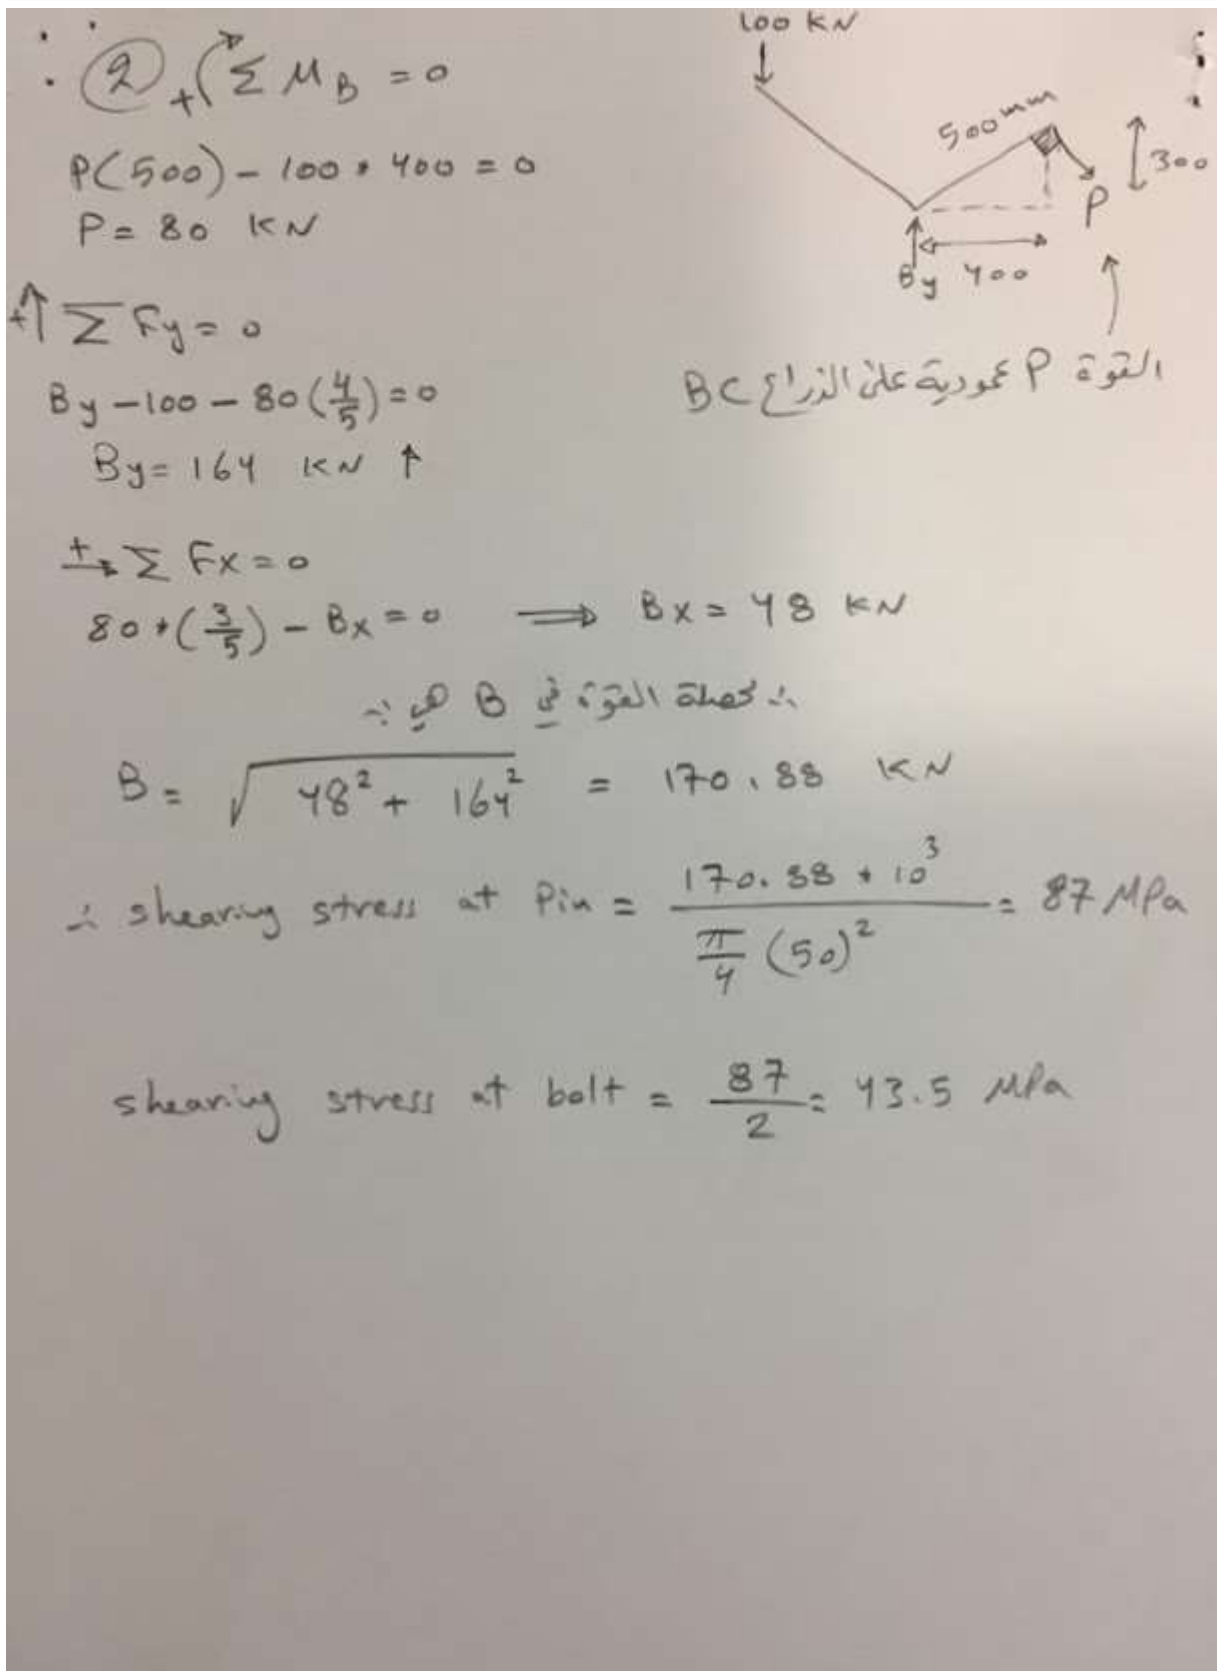 ② + Σ M_B = 0
100 KN
P(500) - 100 * 400 = 0
P = 80 KN
500mm
300
P
By 400
+↑ Σ Fy = 0
By - 100 - 80 (4/5) = 0
القوة P عمودية على الذراع BC
By = 164 KN ↑
+→ Σ Fx = 0
80 * (3/5) - Bx = 0 ⟹ Bx = 48 KN
∴ محصلة القوة في B هي :-
B = √(48² + 164²) = 170.88 KN
∴ shearing stress at Pin = (170.88 * 10³) / (π/4 (50)²) = 87 MPa
shearing stress at bolt = 87/2 = 43.5 MPa